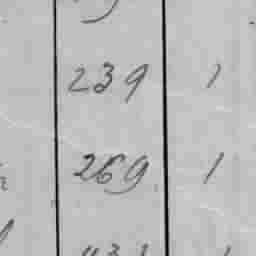 239 1
269 1